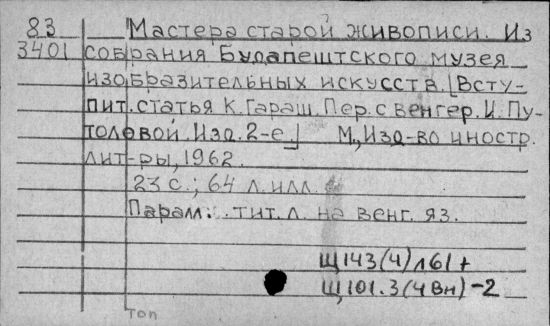 83 Мастера старой живописи. Из
3401 собрания Будапештского музея
изобразительных искусств. [Всту-
пит. статья К. Гараш. Пер. с венгер. И. Пу-
толовой. Изд. 2-е] М., Изд-во иностр.
лит-ры, 1962.
23 с.; 64 л. илл.
Паралл. тит. л. на венг. яз.
Щ143(4)л61+
Щ101.3(4Вн)-2
топ